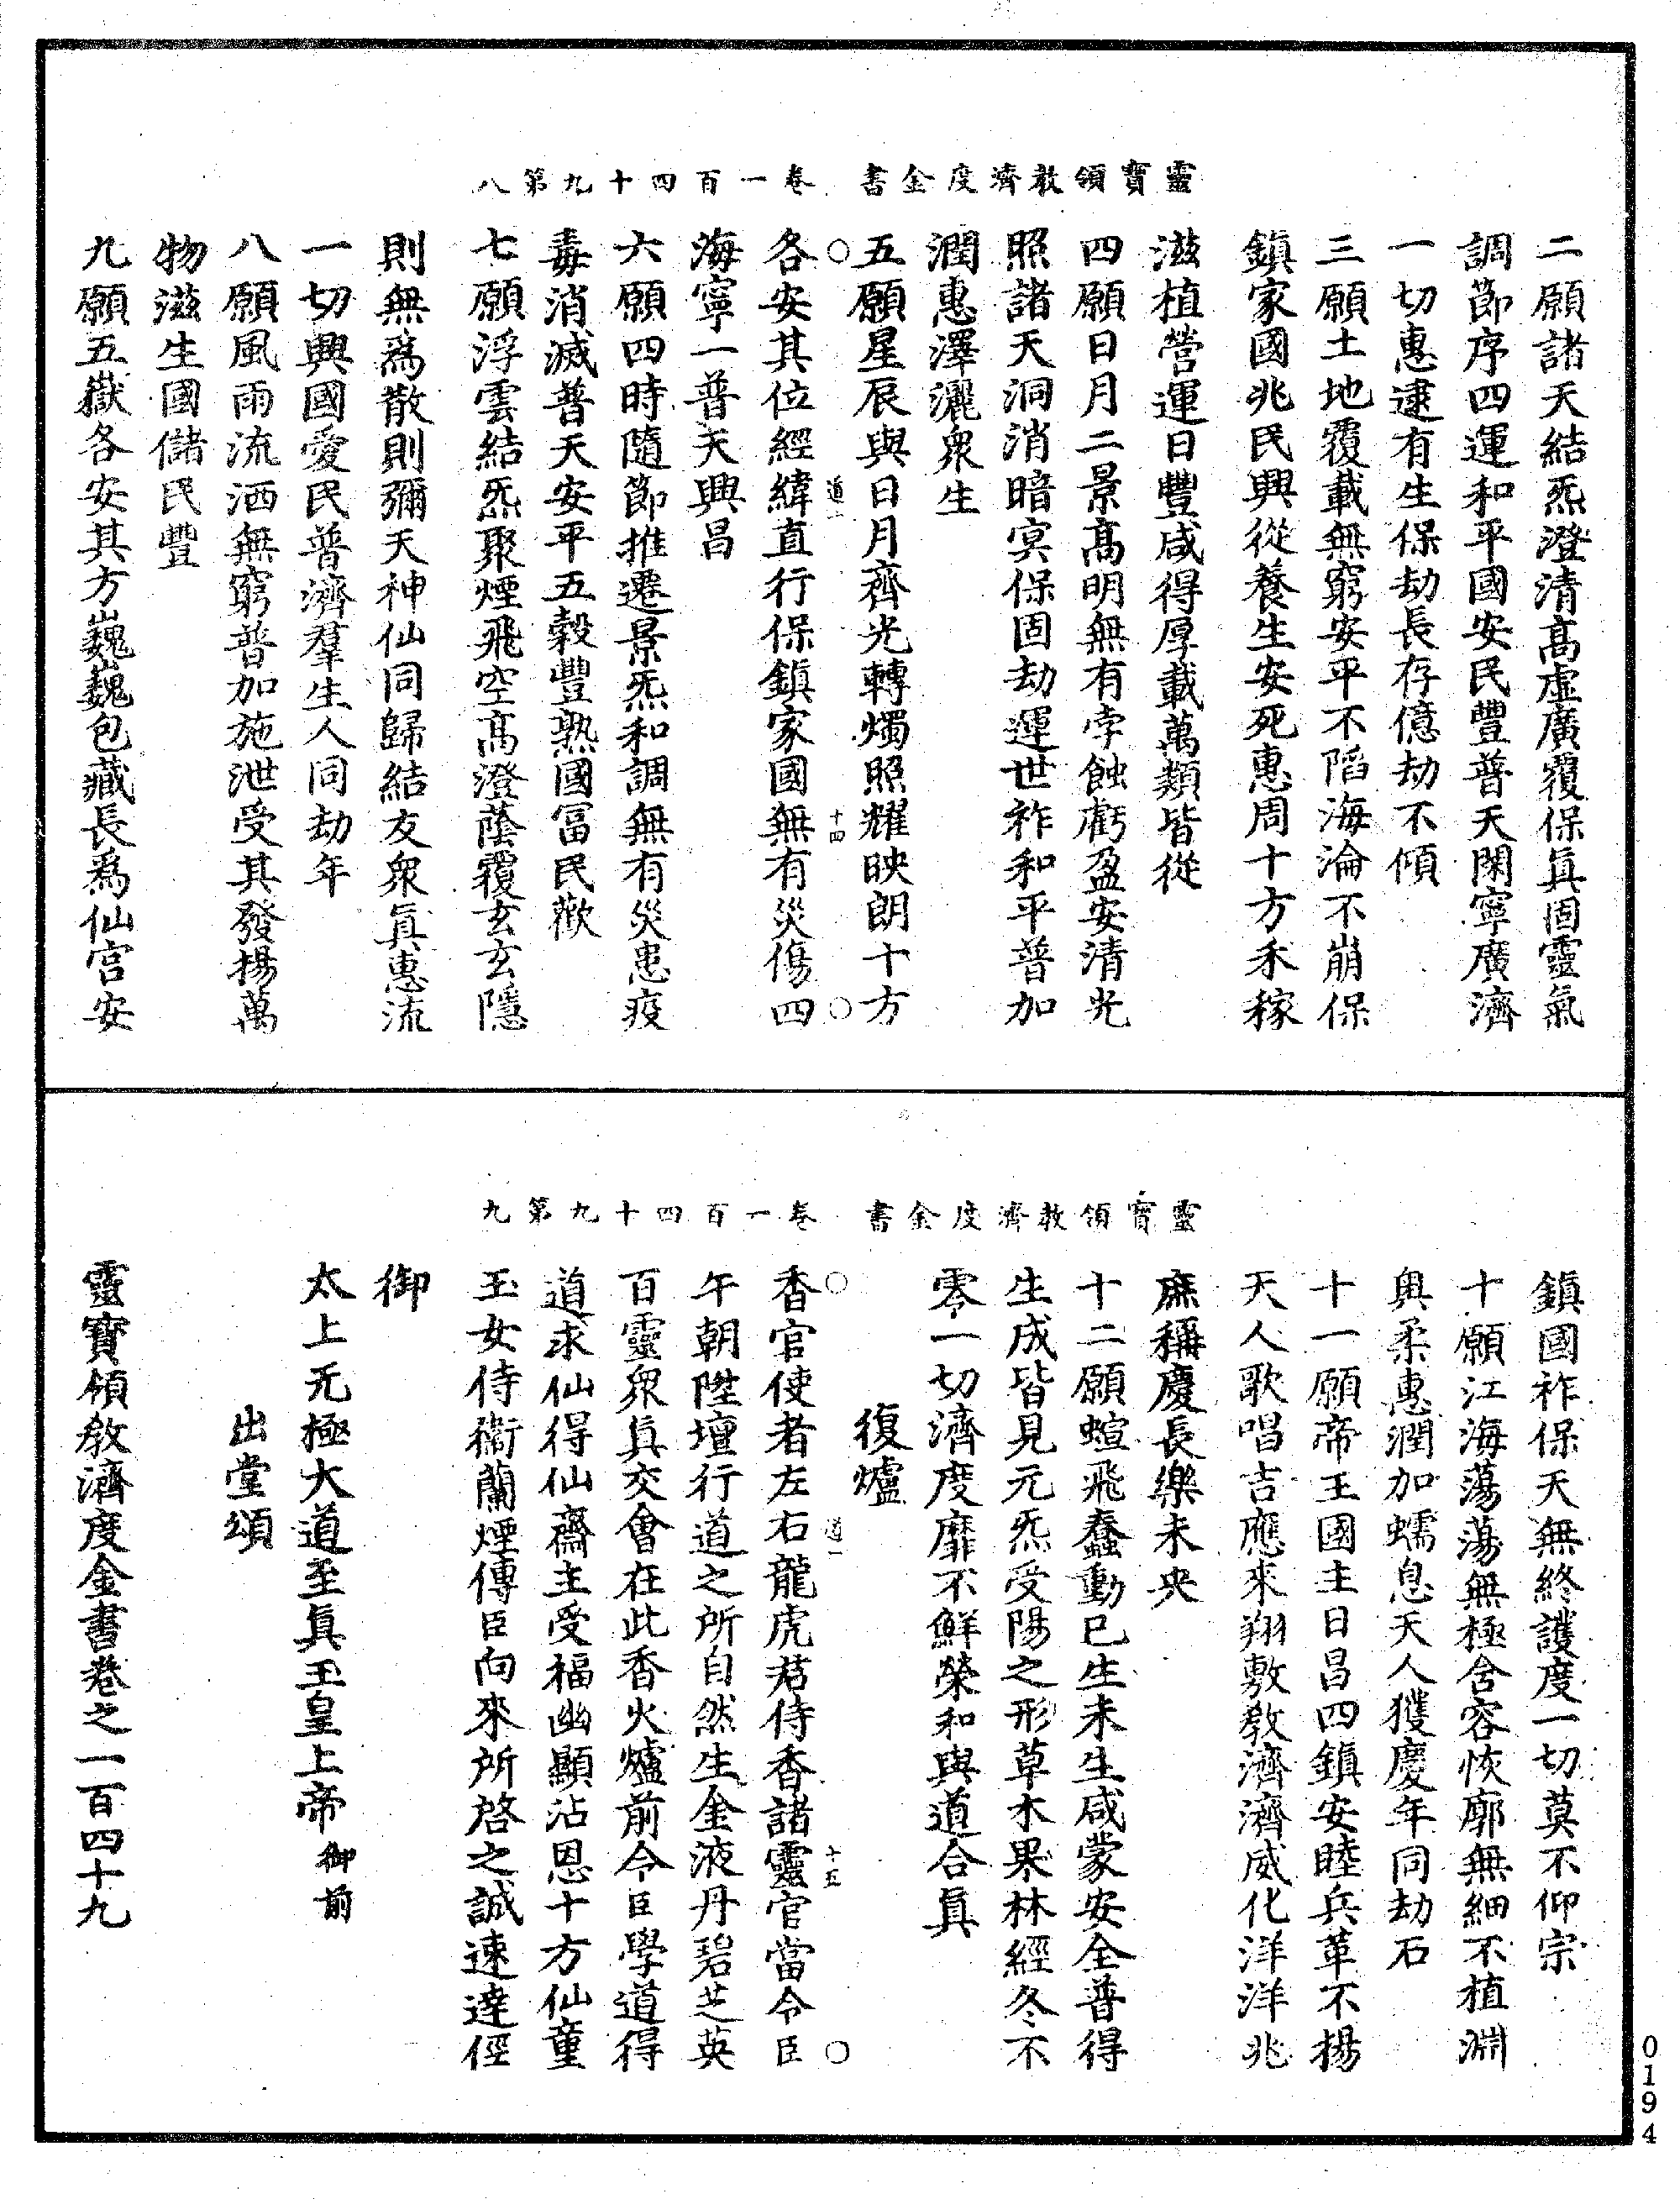 靈寶領教濟度金書　卷一百四十九第八
二願諸天結炁澄清高虛廣覆保真固靈氣
調節序四運和平國安民豐普天閑寧廣濟
一切惠逮有生保劫長存億劫不傾
三願土地覆載無窮安平不陷海淪不崩保
鎮家國兆民興從養生安死惠周十方禾稼
滋植營運日豐咸得厚載萬類皆從
四願日月二景高明無有孛蝕虧盈安清光
照諸天洞消暗冥保固劫運世祚和平普加
潤惠澤灑眾生
五願星辰與日月齊光轉燭照耀映朗十方
道一　十四
各安其位經緯直行保鎮家國無有災傷四
海寧一普天興昌
六願四時隨節推遷景炁和調無有災患疫
毒消滅普天安平五穀豐熟國富民歡
七願浮雲結炁聚煙飛空高澄蔭覆玄玄隱
則無為散則彌天神仙同歸結友眾真惠流
一切興國愛民普濟羣生人同劫年
八願風雨流洒無窮普加施泄受其發揚萬
物滋生國儲民豐
九願五嶽各安其方巍巍包藏長為仙宮安
靈寶領教濟度金書　卷一百四十九第九
鎮國祚保天無終護度一切莫不仰宗
十願江海蕩蕩無極含容恢廓無細不植淵
輿柔惠潤加蠕息天人獲慶年同劫石
十一願帝王國主日昌四鎮安睦兵革不揚
天人歌唱吉應來翔敷教濟濟威化洋洋兆
庶稱慶長樂未央
十二願蝖飛蠢動已生未生咸蒙安全普得
生成皆見元炁受陽之形草木果林經冬不
零一切濟度靡不鮮榮和與道合真
復爐
道一　十五
香官使者左右龍虎君侍香諸靈官當令臣
午朝陞壇行道之所自然生金液丹碧芝英
百靈眾真交會在此香火爐前令臣學道得
道求仙得仙齋主受福幽顯沾恩十方仙童
玉女侍衛蘭煙傳臣向來所啓之誠速達徑
御
太上无極大道至真玉皇上帝御前
出堂頌
靈寶領教濟度金書卷之一百四十九
0194